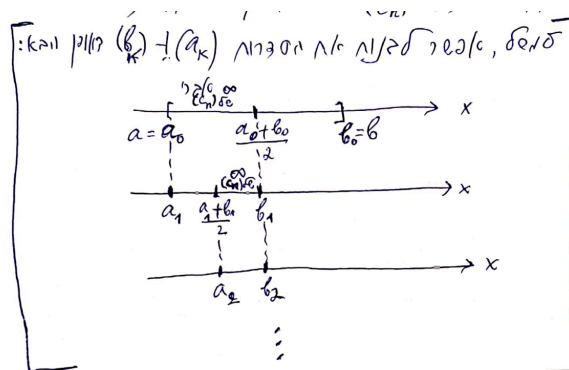 למשל, אפשר לבנות את הסדרות (aₖ) ו-(bₖ) באופן הבא:
∞ איברי
של (cₙ)
x
a = a₀
(a₀+b₀)/2
b₀ = b
∞
של (cₙ)
x
a₁
(a₁+b₁)/2
b₁
x
a₂
b₂
⋮